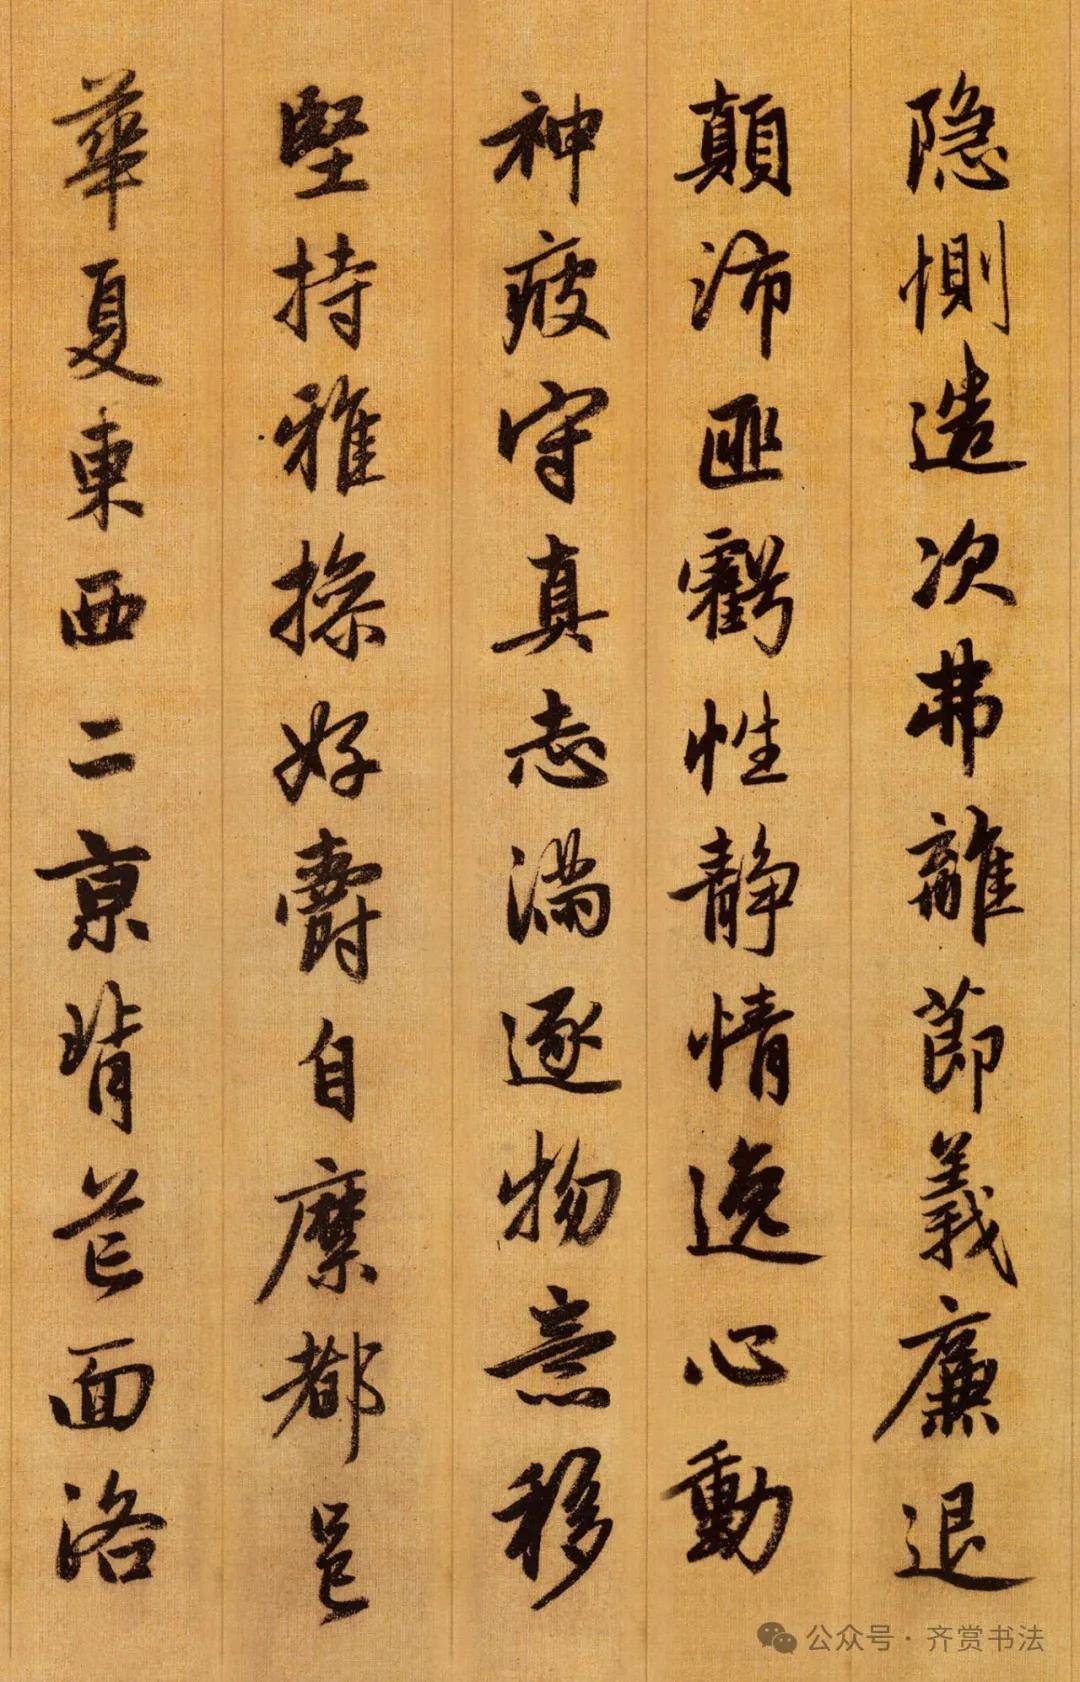 隐惻造次弗離節義廉退
顛沛匪虧性静情逸心動
神疲守真志滿逐物意移
堅持雅操好爵自縻都邑
華夏東西二京背芒面洛
公众号·齐赏书法